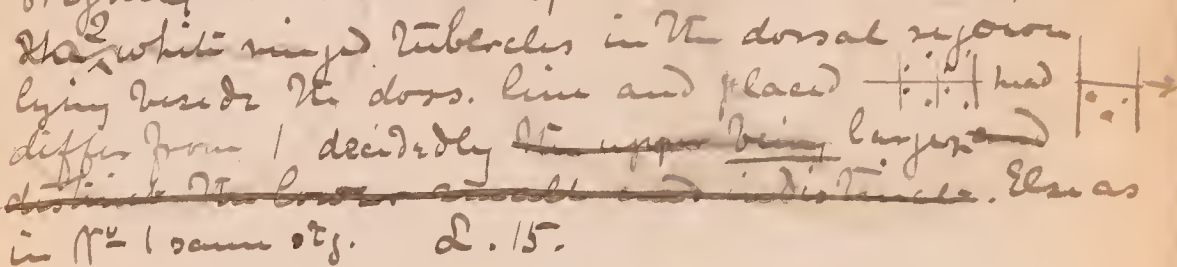 the 2 white ringed tubercles in the dorsal region
lying beside the dors. line and placed head
differ from 1 decidedly the upper being larger and
distinct the lower small and indistinct. Else as
in No 1 same stg. L. 15.